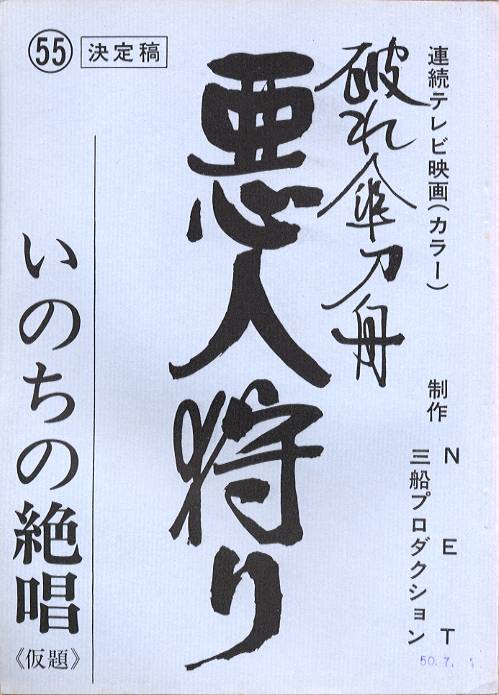 連続テレビ映画(カラー)
制作 NET
三船プロダクション
破れ傘刀舟
悪人狩り
55 決定稿
いのちの絶唱《仮題》
50.7.